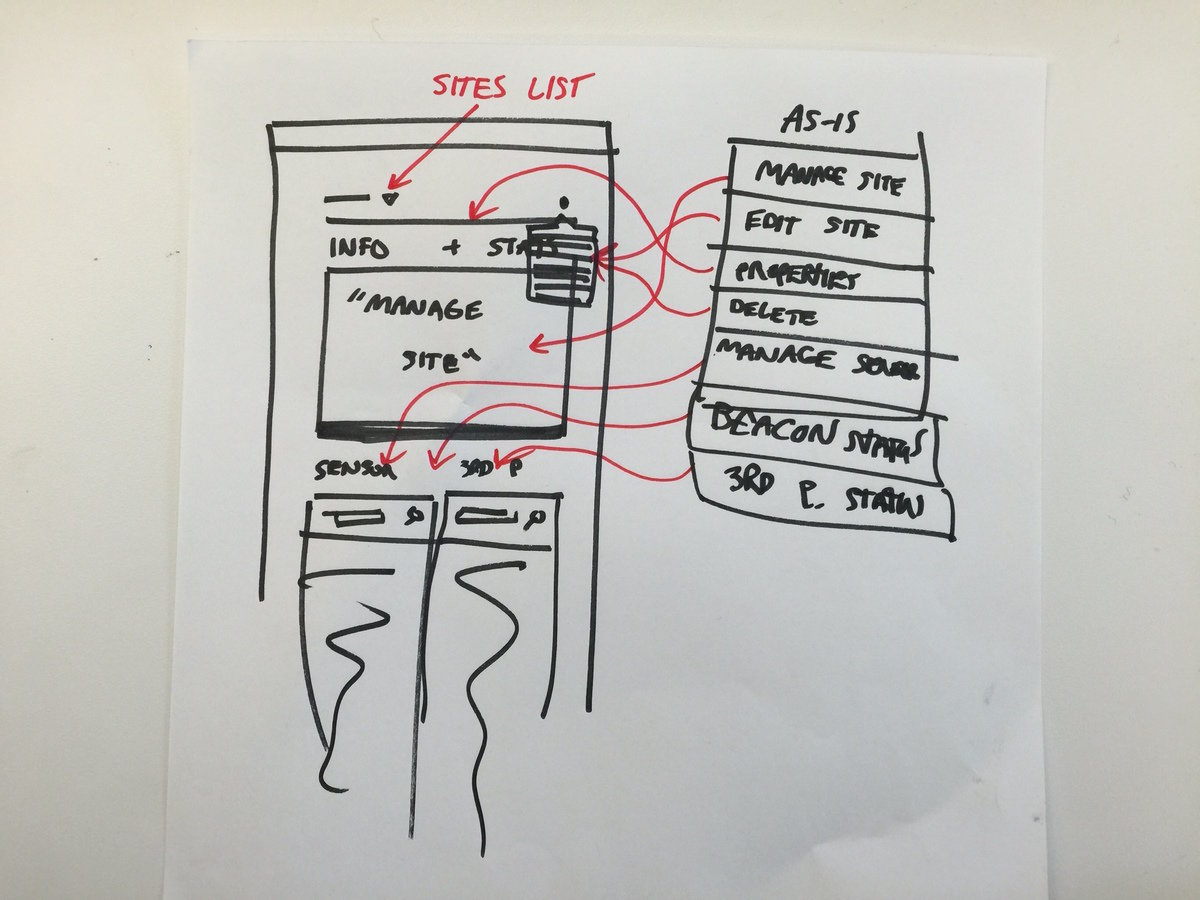 SITES LIST
INFO + STATS
"MANAGE
SITE"
SENSOR 3RD P
AS-IS
MANAGE SITE
EDIT SITE
PROPERTIES
DELETE
MANAGE SENSOR
BEACON STATUS
3RD P. STATUS